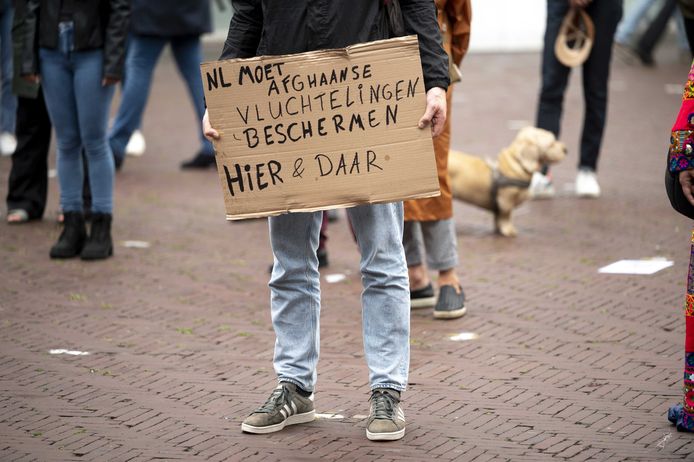 NL MOET
AFGHAANSE
VLUCHTELINGEN
BESCHERMEN
HIER & DAAR